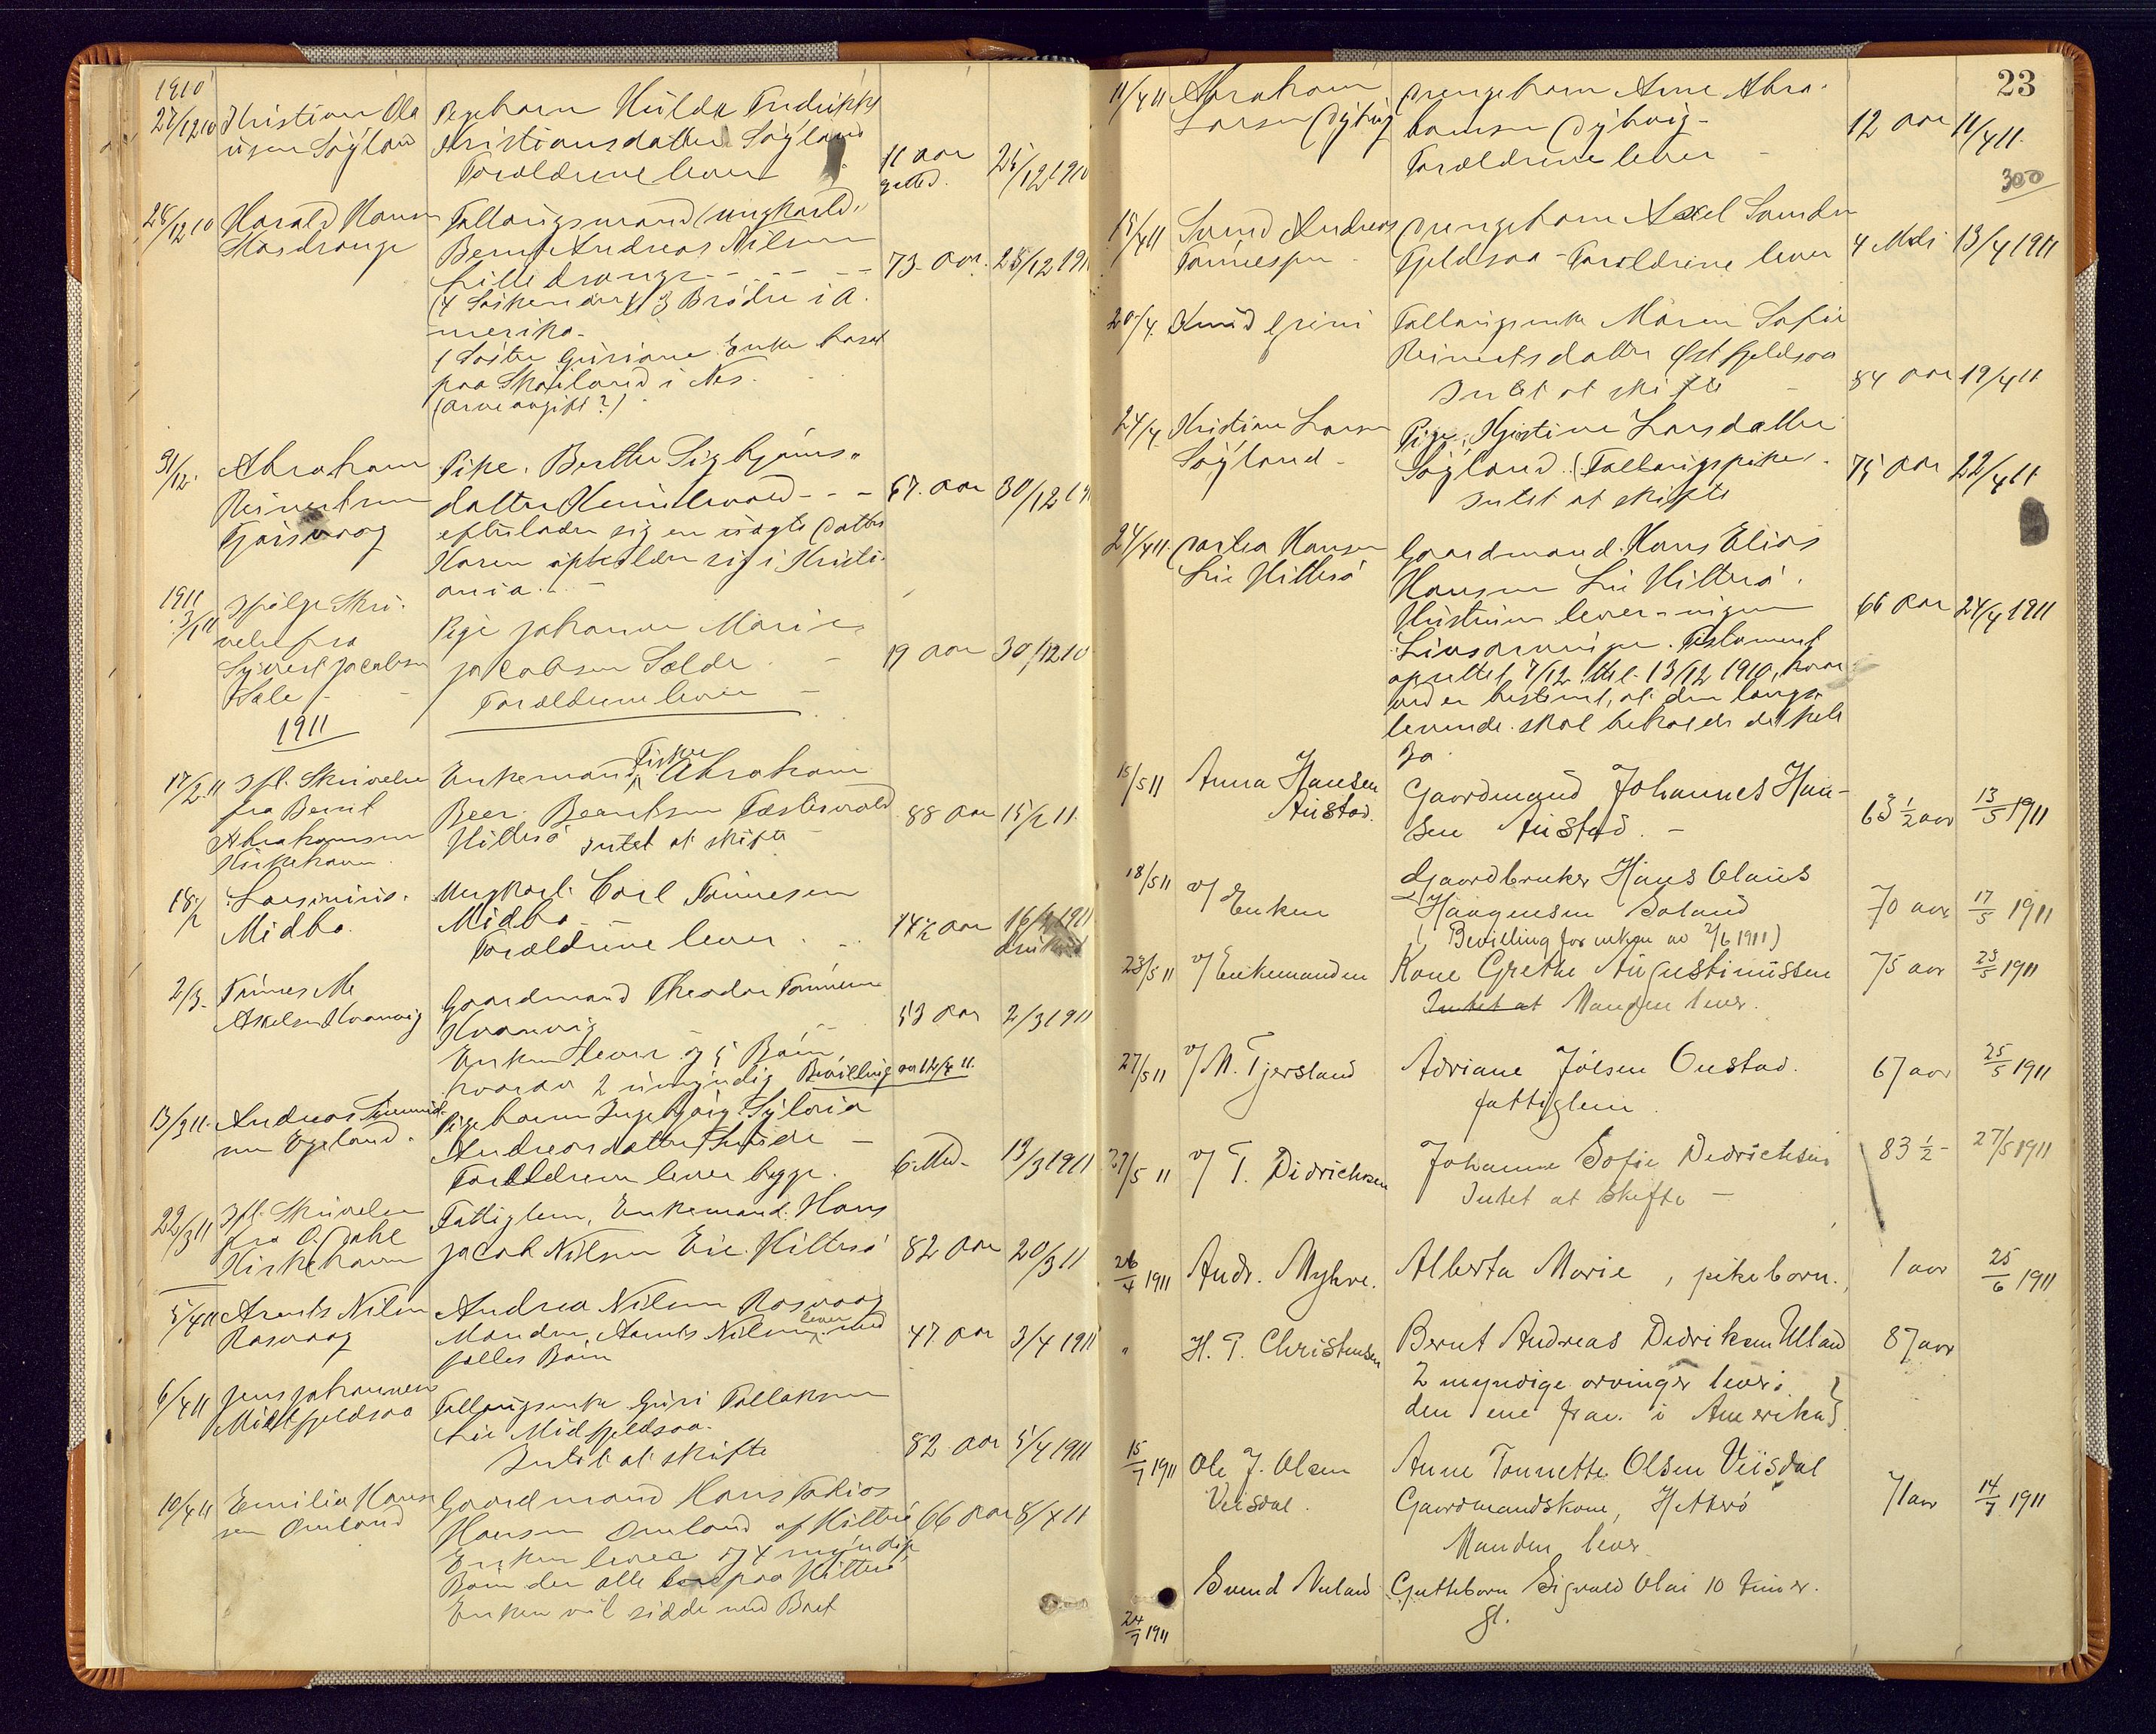 1910
27/12 10 Kristian Ola Pigebarn Hulda Fredrikke
usen Søyland Kristiansdatter Søyland
Forældrene lever 11 aar 25/12 1910
gaml.
28/12 10 Harald Hansen Fattiglem (ungkarl)
Skasdrange Bernt Andreas Nilsen
Lilledrange 73 aar. 28/12 191
(4 Søskende 3 Brødre i A
merika.
1 Søster Guriane Enke bosat
paa i Nes.
(Arveavgift?)
31/12. Abraham Pike. Berthe Sigbjørns
Reinertsen datter 67 aar 30/12 19
efterlader sig en uægte Datter
Karen opholder sig i Kristi
ania.
1911
3/1 11 Ifølge Skri
velse fra Pige Johanne Marie
Sivert Jacobsen Jacobsen 19 aar 30/12 10
Forældrene lever
1911
17/2 11 Ifl. Skrivelse Enkemand Fisker Abraham
fra Bernt Beer Berntsen 88 aar 15/2 11
Abrahamsen Hitterø intet at skifte
Kirkehavn
18/2 Ungkarl Carl Tønnesen
Midbø Midbø 14½ aar 16/2 1911
Forældrene lever druknet
2/3 Tønnes M. Gaardmand Theodor Tønnesen
Akselsen Kvanvig Kvanvig 53 aar 2/3 1911
Enken lever og 5 Børn,
hvorav 2 umyndig Bevilling av 12/4 11.
13/3 11. Andreas Pigebarn Ingebjørg Sylvia
Egeland. Andreasdatter
Forældrene lever begge. 6 Md. 13/3 1911
22/3 11 Ifl. Skrivelse Fattiglem, Enkemand Hans
fra O. Dahl Jacob Nilsen Eie Hitterø 82 aar 20/3 11
Kirkehavn
5/4 11 Arents Nilsen Andrea Nilsen Rasvaag
Rasvaag Manden, Arents Nilsen lever med 47 aar 3/4 1911
fælles Børn
6/4 11 Jens Johannesen Fattigenke Guri Tollaksen
Midtfjeldsaa Lie Midfjeldsaa. 82 aar 5/4 1911
Intet at skifte
10/4 11 Emilia Han Gaardmand Hans Tobias
sen Omland Hansen Omland af Hitterø 66 aar 8/4 11
Enken lever og 4 myndige
Børn der alle bor paa Hitterø
Enken vil sidde med Boet
23
11/4 11 Abraham Drengebarn Arne Abra
Larsen Dybvig hamsen Dybvig 12 aar 11/4 11.
Forældrene lever
300
15/4 11 Svend Andreas Drengebarn Axel Svendsen
Tønnessen Fjeldsaa Forældrene lever 4 Mdr 13/4 1911
20/4. Knud Grini Fattigenke Maren Sofie
Reinertsdatter Øst fjeldsaa
Intet at skifte 84 aar 19/4 11
24/4 Kristian Larsen Pige, Kjistine Larsdatter
Søyland Søyland. (Fattigpike) 75 aar 22/4 11
Intet at skifte
24/4 11. Hansen Gaardmand Hans Elias
Lie Hitterø Hansen Lie Hitterø.
Hustruen lever - ingen 66 aar 24/4 1911
Livsarvinger. Testament
oprettet 7/12 thl. 13/12 1910, hvor
ved er bestemt, at den længst
levende skal beholde det hele
Bo
15/5 11 Anna Hansen Gaardmand Johannes Han-
Austad. sen Austad. 63 1/2 aar 13/5 1911
18/5 11 v/ Enken Gaardbruker Hans Olaus
Haagensen Boland 70 aar 17/5 1911
(Bevilling for enken av 2/6 1911)
23/5 11 v/ Enkemanden Kone Grethe Augustinussen 75 aar 23/5 1911
Intet at Manden lever.
27/5 11 v/ M. Tjersland Adriane Jølsen Oustad. 67 aar 25/5 1911
fattiglem.
27/5 11 v/ T. Didrichsen Johanne Sofie Dedrichsen 83 1/2 - 27/5 1911
Intet at skifte -
26/4 1911 Andr. Myhre. Alberta Marie, pikebarn. 1 aar 25/6 1911
" H. T. Christensen Bernt Andreas Dedriksen Ulland 87 aar
2 myndige arvinger lever.
den ene frav. i Amerika}
15/7 1911 Ole J. Olsen Anne Tonnette Olsen Veisdal
Veisdal. Gaardmandskone, Hitterø 71 aar 14/7 1911
Manden lever
24/7 1911 Svend Nuland Gutteborn Sigvald Olai 10 timer
gl.